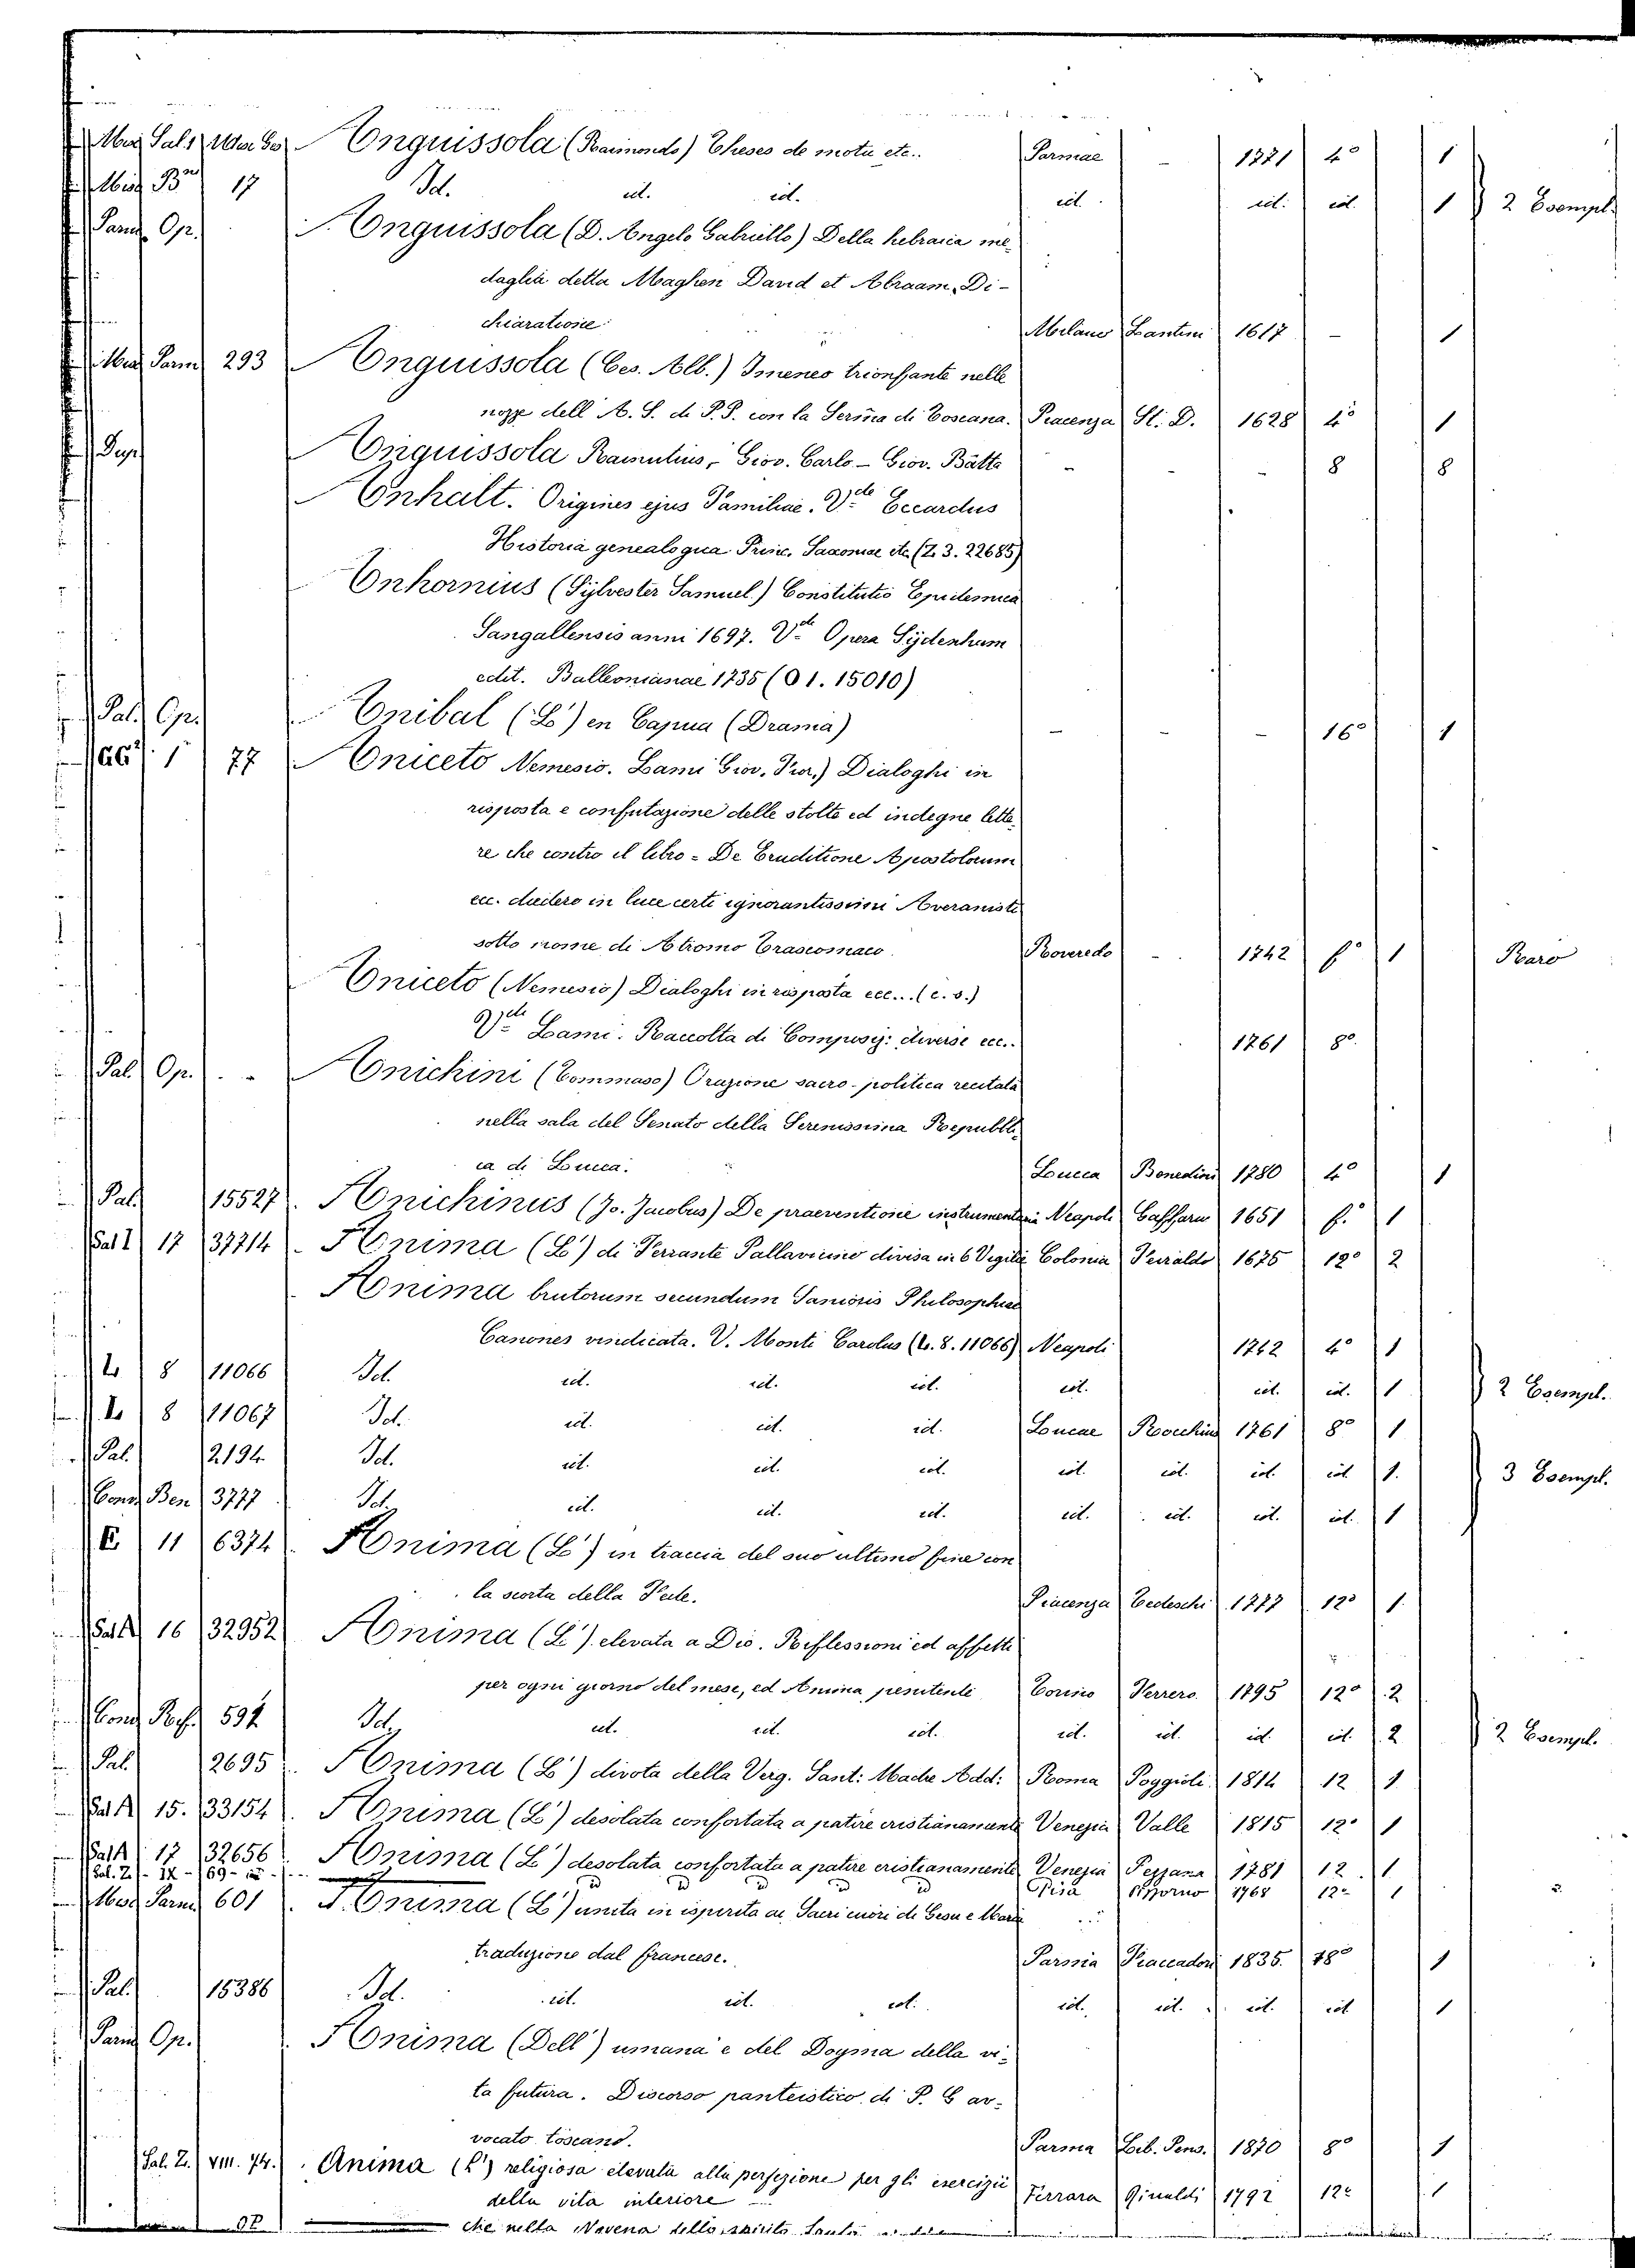 Anguissola (Raimondo) Theses de motu etc.. Parmae - 1771 4° 1
Misc. Bna 17 Id. id. id. id. id. id. 1 2 Esempl.
Parm. Op. Anguissola (D. Angelo Gabriello) Della hebraica me-
daglia detta Maghen David et Abraam. Di-
chiaratione Milano Lantini 1617 - 1
Misc. Parm. 293 Anguissola (Ces. Alb.) Imeneo trionfante nelle
nozze dell' A. S. di P. P. con la Serma di Toscana. Piacenza St. D. 1628 4° 1
Anguissola Ramulius, - Giov. Carlo - Giov. Batta - - - 8 8
Anhalt. Origines ejus Familiae. Vde Eccardus
Historia genealogica Princ. Saxoniae etc (Z. 3. 22685)
Anhornius (Sylvester Samuel) Constitutio Epidemica
Sangallensis anni 1697. Vde Opera Sydenham
edit. Balleonianae 1735 (O 1. 15010)
Pal. Op. Anibal (L') en Capua (Drama) - - - 16° 1
77 Aniceto Nemesio. Lami Giov. Dialoghi in
risposta e confutazione delle stolte ed indegne lette-
re che contro il libro = De Eruditione Apostolorum
ecc. diedero in luce certi ignorantissimi Averanisti
sotto nome di Atromo Trascomaco. Roveredo - 1742 f° 1 Raro
Aniceto (Nemesio) Dialoghi in risposta ecc... (c. s.)
Vde Lami. Raccolta di Composiz: diverse ecc.. 1761 8°.
Pal. Op. Anichini (Tommaso) Orazione sacro-politica recitata
nella sala del Senato della Serenissima Repubbli-
ca di Lucca. Lucca Benedini 1780 4° 1
Pal. 15527 Anichinus (Jo. Jacobus) De praeventione instrumentaria Neapoli Caffaro 1651 f. 1
Sal. I 17 37714 Anima (L') di Ferrante Pallavicino divisa in 6 Vigilie Colonia Feiraldo 1675 12° 2
Anima brutorum secundum Sanioris Philosophiae
Canones vindicata. V. Monti Carolus (L. 8. 11066) Neapoli 1742 4° 1
L 8 11066 Id. id. id. id. id. id. id. 1 2 Esempl.
L 8 11067 Id. id. id. id. Lucae Rocchius 1761 8° 1
Pal. 12194 Id. id. id. id. id. id. id. id. 1. 3 Esempl.
Cons. Ben 3777 Id. id. id. id. id. id. id. id. 1
E 11 6374 Anima (L') in traccia del suo ultimo fine con
la scorta della Fede. Piacenza Tedeschi 1777 12° 1.
Sal. A 16 32952 Anima (L') elevata a Dio. Riflessioni ed affetti
per ogni giorno del mese, ed Anima penitente Torino Ferrero 1795 12° 2
Id. id. id. id. id. id. id. id. 2 2 Esempl.
Pal. 12695 Anima (L') divota della Verg. Sant: Madre Add: Roma Poggioli 1814 12 1
Sal. A 15. 33154 Anima (L') desolata confortata a patire cristianamente Venezia Valle 1815 12° 1
Sal. A 17 32656 Anima (L') desolata confortata a patire cristianamente Venezia Pezzana 1781 12 1
Pisa 1768 12° 1
Misc. Parm. 601 Anima (L') unita in ispirito ai Sacri cuori di Gesù e Maria
traduzione dal francese. Parma 1835. 18° 1
Pal. 15386 Id. id. id. id. id. id. id. id. 1
Parm. Op. Anima (Dell') umana e del Dogma della vi-
ta futura. Discorso panteistico di P. C av-
vocato toscano. Parma 1870 8° 1
Sal. Z. VIII. 74. Anima (L') religiosa elevata alla perfezione per gli esercizii
della vita interiore Ferrara Rinaldi 1792 12° 1